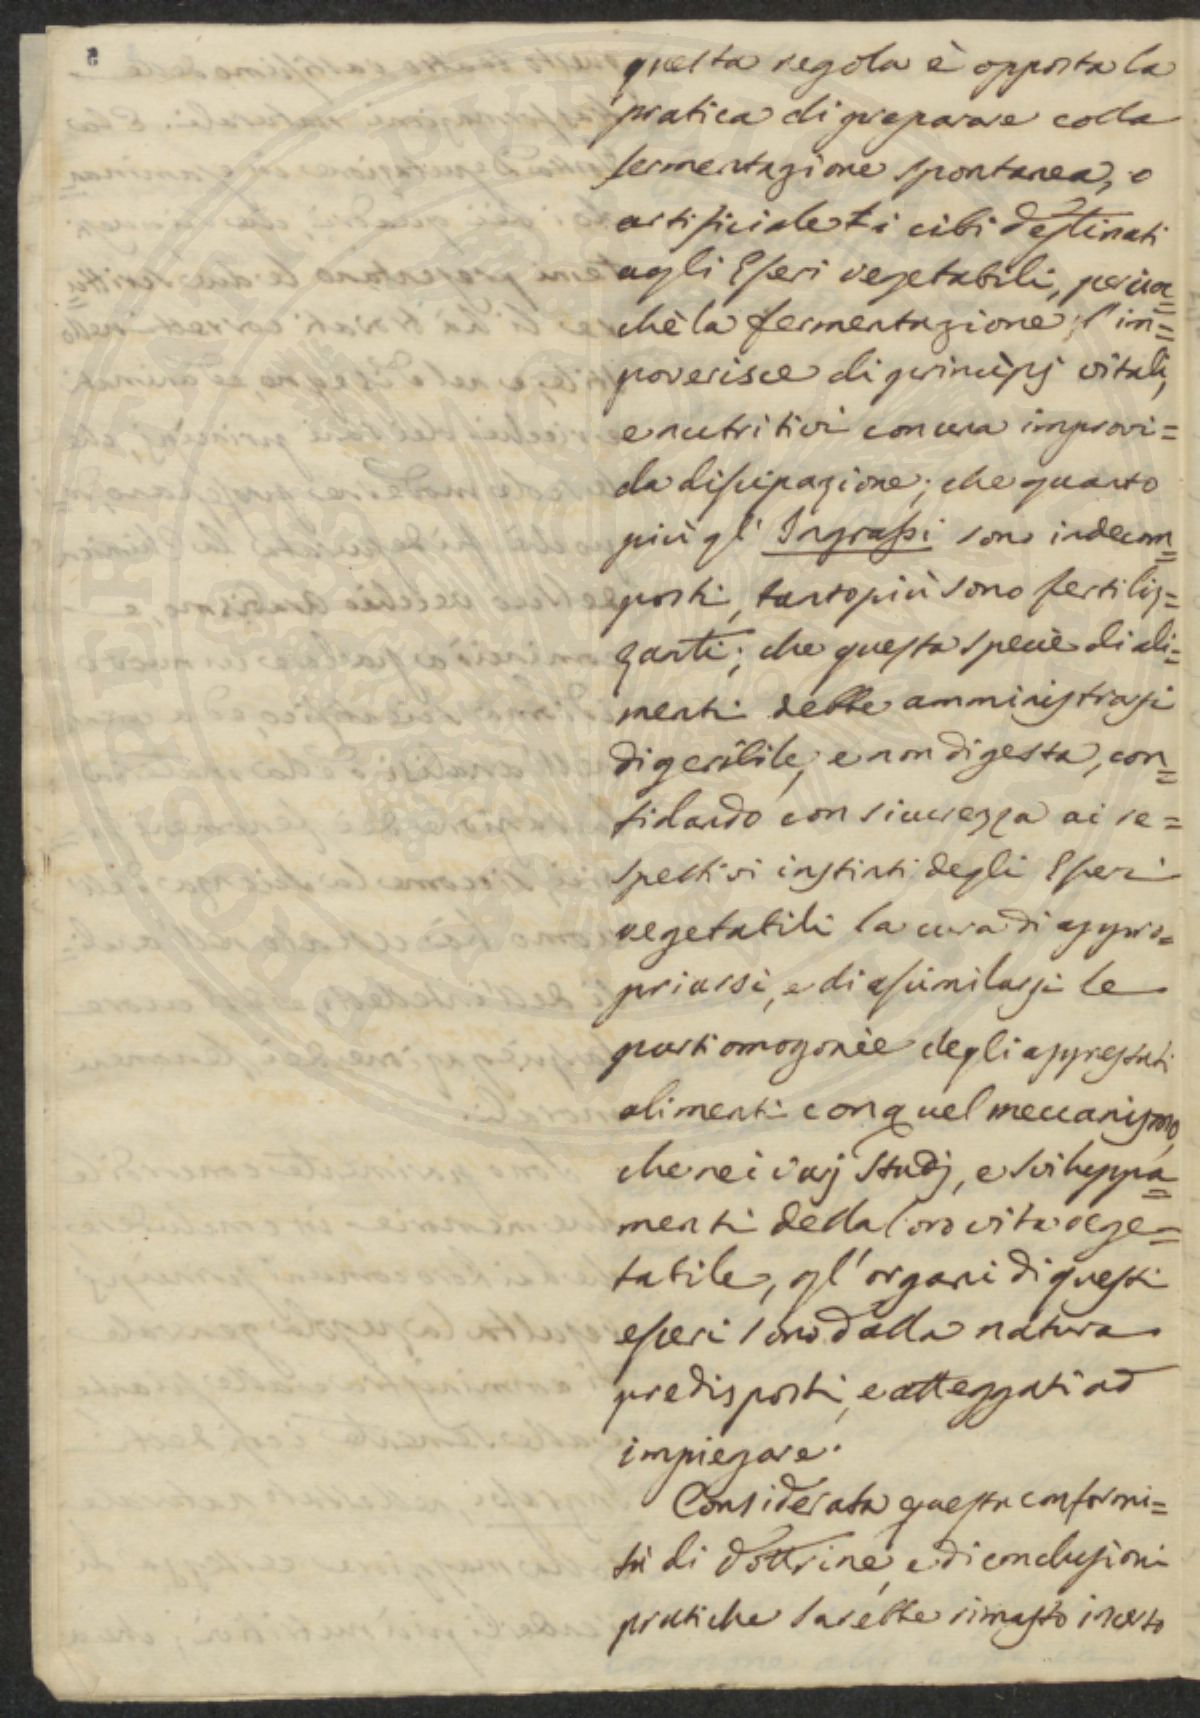 questa regola è opposta la
pratica di preparare colla
fermentazione spontanea, o
artificiale i cibi destinati
agli Esseri vegetabili, perioc=
chè la fermentazione l'im=
poverisce di principj vitali,
e nutritivi con una improvi=
da dissipazione; che quanto
più gl' Ingrassi sono indecom=
posti, tanto più sono fertiliz=
zanti; che questa specie di ali=
menti debbe amministrarsi
digeribile, e non digesta, con=
fidando con sicurezza ai re=
spettivi instinti degli Esseri
vegetabili la cura di appro=
priarsi, e di assimilarsi le
parti omogenèe degli apprestati
alimenti con quel meccanismo,
che nei varj Stadj, e sviluppa=
menti della loro vita vege=
tabile, gl' organi di questi
esseri sono dalla natura
predisposti, e atteggiati ad
impiegare.
Considerata questa conformi=
tà di dottrine, e di conclusioni
pratiche sarebbe rimasto incerto